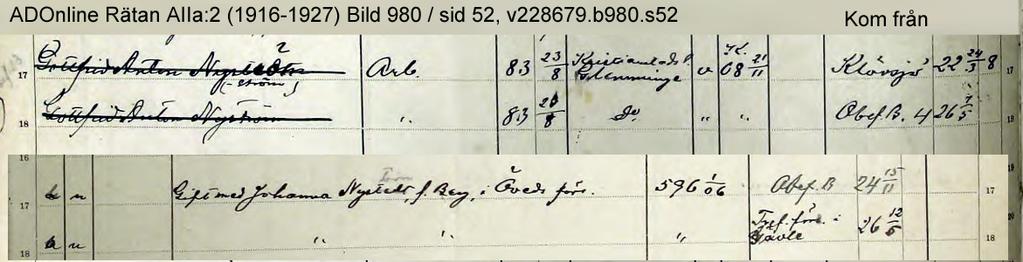 ADOnline Rätan AIIa:2 (1916-1927) Bild 980 / sid 52, v228679.b980.s52
Kom från
17 Gottfrid Anton Nyst Arb. 83 23/8 Kristianstads l. Glemminge v 08 21/11 Klövsjö 22 24/3 8 17
(-ström)
18 Gottfrid Anton Nyström " 83 23/8 Do " " Obef. B. 4 26 7/5 18
16
17 u Gift med Johanna f. Berg, i Öveds förs. 596 1/06 Obef. B 24 15/11 17
18 u " " " Tref. förs. i Gävle 26 12/5 18